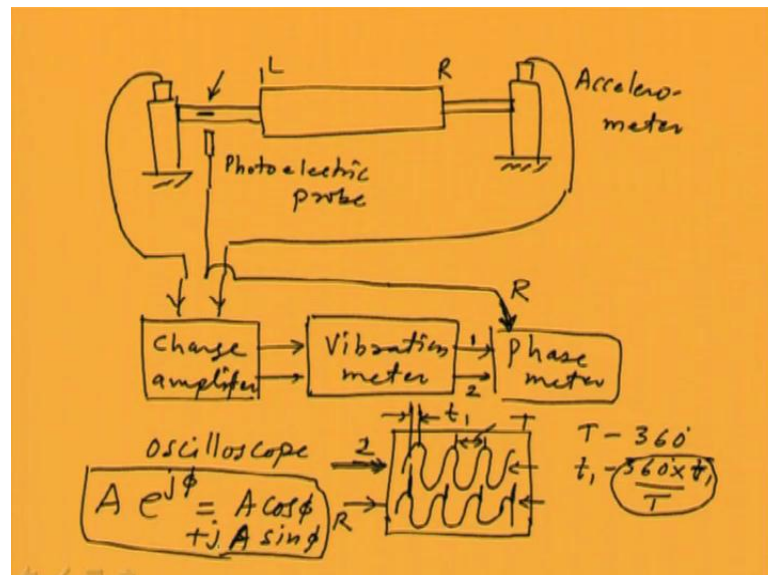 L
R
Accelero-
meter
Photoelectric
probe
R
Charge
amplifier
Vibration
meter
1
2
Phase
meter
t₁
T
oscilloscope
2
T - 360°
t₁ - 360°×t₁
T
A e^{jφ} = A cosφ
+j A sinφ
R